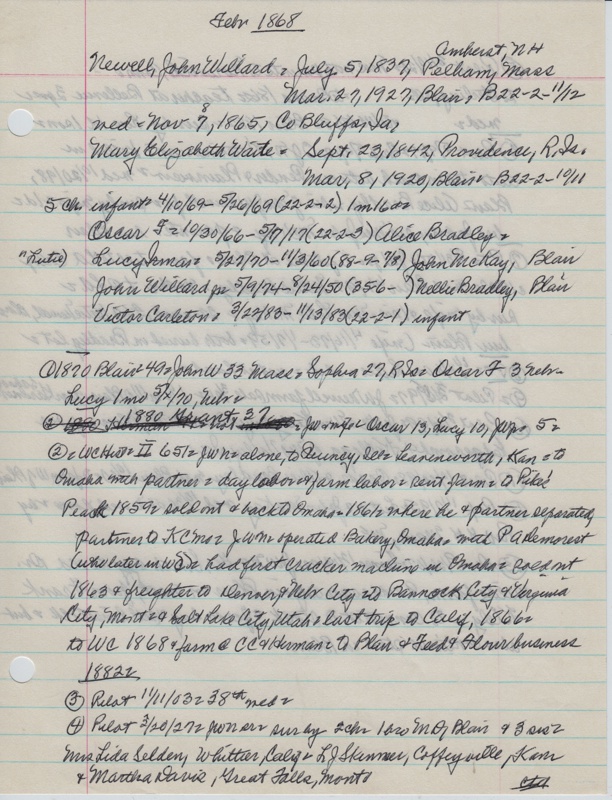 Febr 1868
Amherst, NH
Newell, John Willard = July 5, 1837, Pelham, Mass
Mar. 27, 1927, Blair, B22-2-11/12
med = Nov 8 7, 1865, Co Bluffs, Ia,
Mary Elizabeth Waite = Sept. 23, 1842, Providence, R. Is.
Mar, 8, 1920, Blair = B22-2-10/11
5 ch infant = 4/10/69 - 5/26/69 (22-2-2) 1m16da
Oscar F = 10/30/66 - 5/7/17 (22-2-3) Alice Bradley =
"Lutie) Lucy = 5/27/70 - 11/3/60 (88-9-7/8) John McKay, Blair
John Willard jr = 5/9/74 - 8/24/50 (356- ) Nellie Bradley, Blair
Victor Carleton = 3/22/83 - 11/13/83 (22-2-1) infant
① 1870 Blair = 49 = John W 33 Mass = Sophia 27, R Is = Oscar F 3 Nebr
Lucy 1 mo 5/70, Nebr =
② 1880 Grant 37 = JW = Oscar 13, Lucy 10, JWjr 5 =
② = WC Hist = II 651 = JWN = alone, to Quincy, Ills = Leavenworth, Kan = to
Omaha with partner = day labor & farm labor = rent farm = to Pike's
Peak 1859 = sold out & back to Omaha = 1861 = where he & partner separated,
partner to KC Mo = JWN = operated Bakery, Omaha = with P A Demorest
(who later in WC) = had first cracker machine in Omaha = sold out
1863 & freighter to Denver & Nebr City = to Bannock City & Virginia
City, Mont = & Salt Lake City, Utah = last trip to Calif, 1866 =
to WC 1868 & farm @ CC & Herman = to Blair & Feed & Flour business
1882 =
③ Pilot 11/11/03 = 38th wed =
④ Pilot 3/20/27 = JWN sr = surv by 2 chr 1 bro MD, Blair & 3 sis =
Mrs Lida Selden, Whittier, Calif = LJ Skinner, Coffeyville, Kans
& Martha Davis, Great Falls, Mont =
ctd